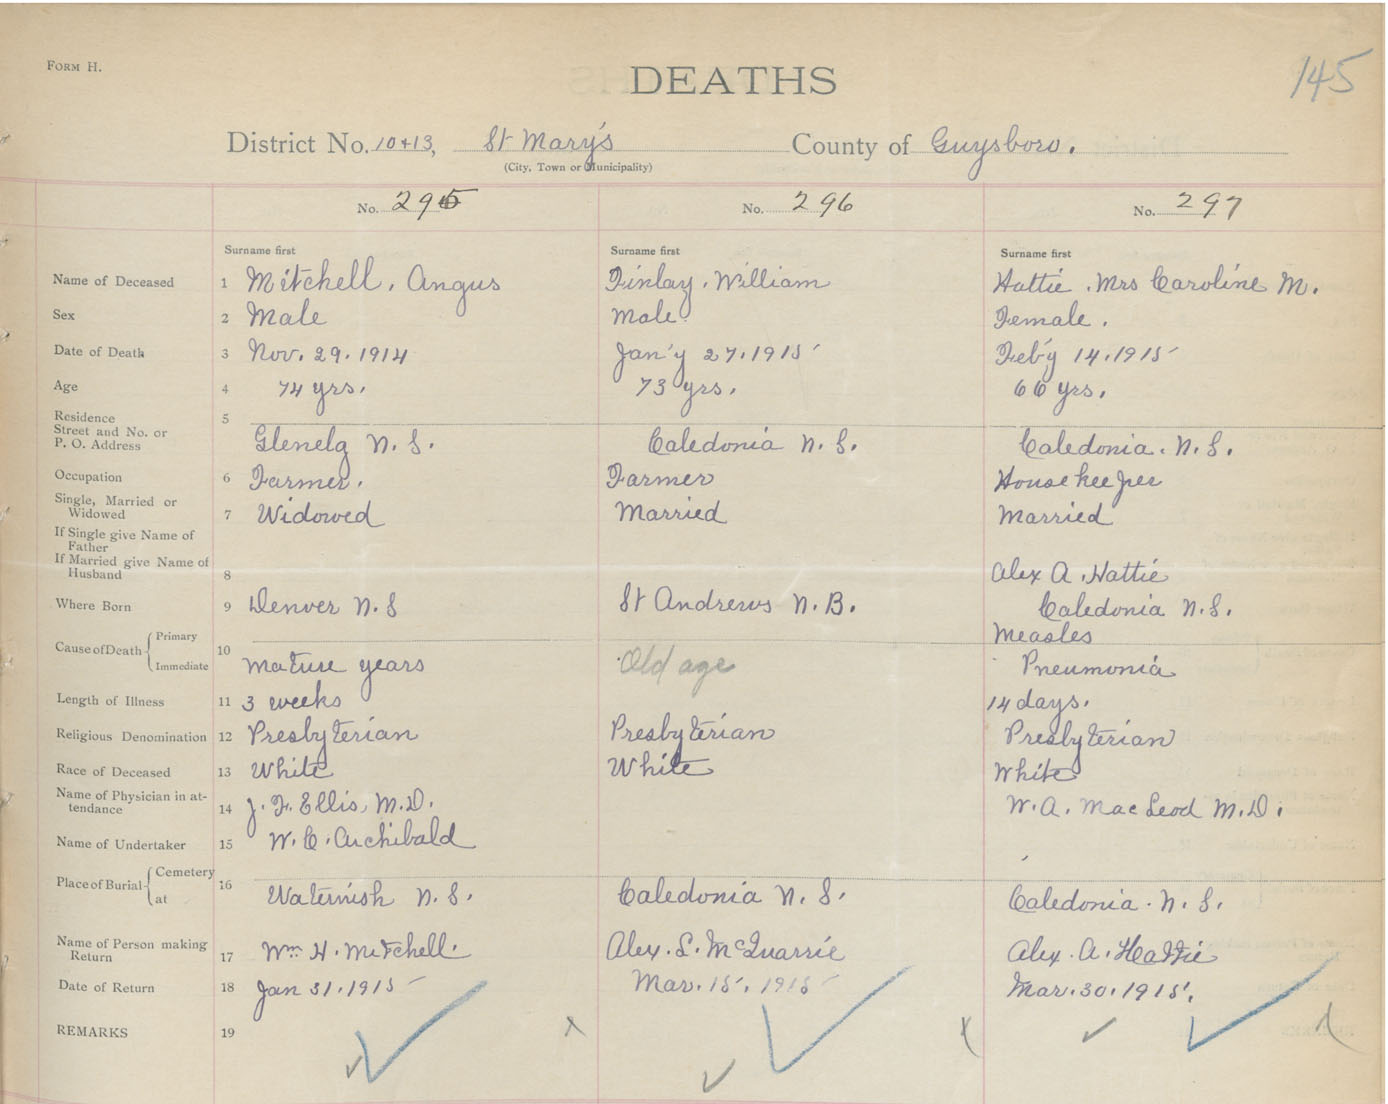 FORM H.
DEATHS
145
District No. 10+13, St Mary's County of Guysboro.
(City, Town or Municipality)
No. 295 No. 296 No. 297
Surname first Surname first Surname first
Name of Deceased 1 Mitchell, Angus Finlay, William Hattie, Mrs Caroline M.
Sex 2 Male Male Female.
Date of Death 3 Nov. 29. 1914 Jan'y 27. 1915 Feb'y 14. 1915
Age 4 74 yrs. 73 yrs. 66 yrs.
Residence 5
Street and No. or
P. O. Address Glenelg N. S. Caledonia N. S. Caledonia. N. S.
Occupation 6 Farmer. Farmer Housekeeper
Single, Married or
Widowed 7 Widowed Married Married
If Single give Name of
Father
If Married give Name of
Husband 8 Alex A. Hattie
Where Born 9 Denver N. S St Andrews N. B. Caledonia N. S.
Cause of Death Primary 10 Measles
Immediate mature years Old age Pneumonia
Length of Illness 11 3 weeks 14 days.
Religious Denomination 12 Presbyterian Presbyterian Presbyterian
Race of Deceased 13 White White White
Name of Physician in at-
tendance 14 J. F. Ellis, M.D. W. A. MacLeod M.D.
Name of Undertaker 15 W. C. Archibald
Place of Burial Cemetery 16
at Waternish N. S. Caledonia N. S. Caledonia. N. S.
Name of Person making
Return 17 Wm. H. Mitchell. Alex. S. McQuarrie Alex. A. Hattie
Date of Return 18 Jan 31. 1915 Mar. 15. 1915 Mar. 30. 1915.
REMARKS 19